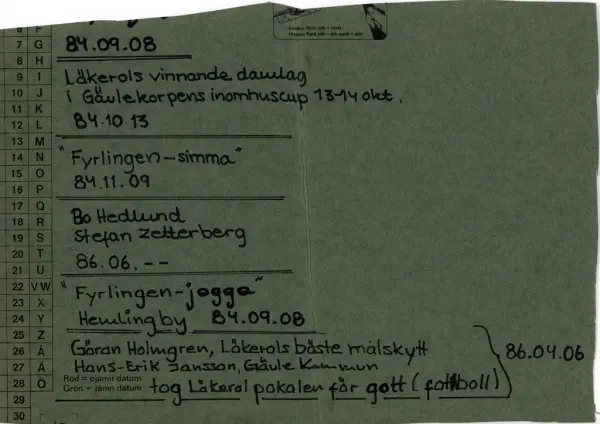 7 G 84.09.08
8 H
9 I Läkerols vinnande damlag
10 J i Gävlekorpens inomhuscup 13-14 okt.
11 K
12 L 84.10.13
13 M
14 N "Fyrlingen-simma"
15 O
16 P 84.11.09
17 Q
18 R Bo Hedlund
19 S Stefan Zetterberg
20 T
21 U 86.06.--
22 VW "Fyrlingen-jogga"
23 X
24 Y Hemlingby 84.09.08
25 Z
26 Å Göran Holmgren, Läkerols bäste målskytt
27 Ä Hans-Erik Jansson, Gävle Kommun 86.04.06
Röd = ojämn datum
28 Ö Grön = jämn datum tog Läkerol pokalen för gott (fotboll)
29
30